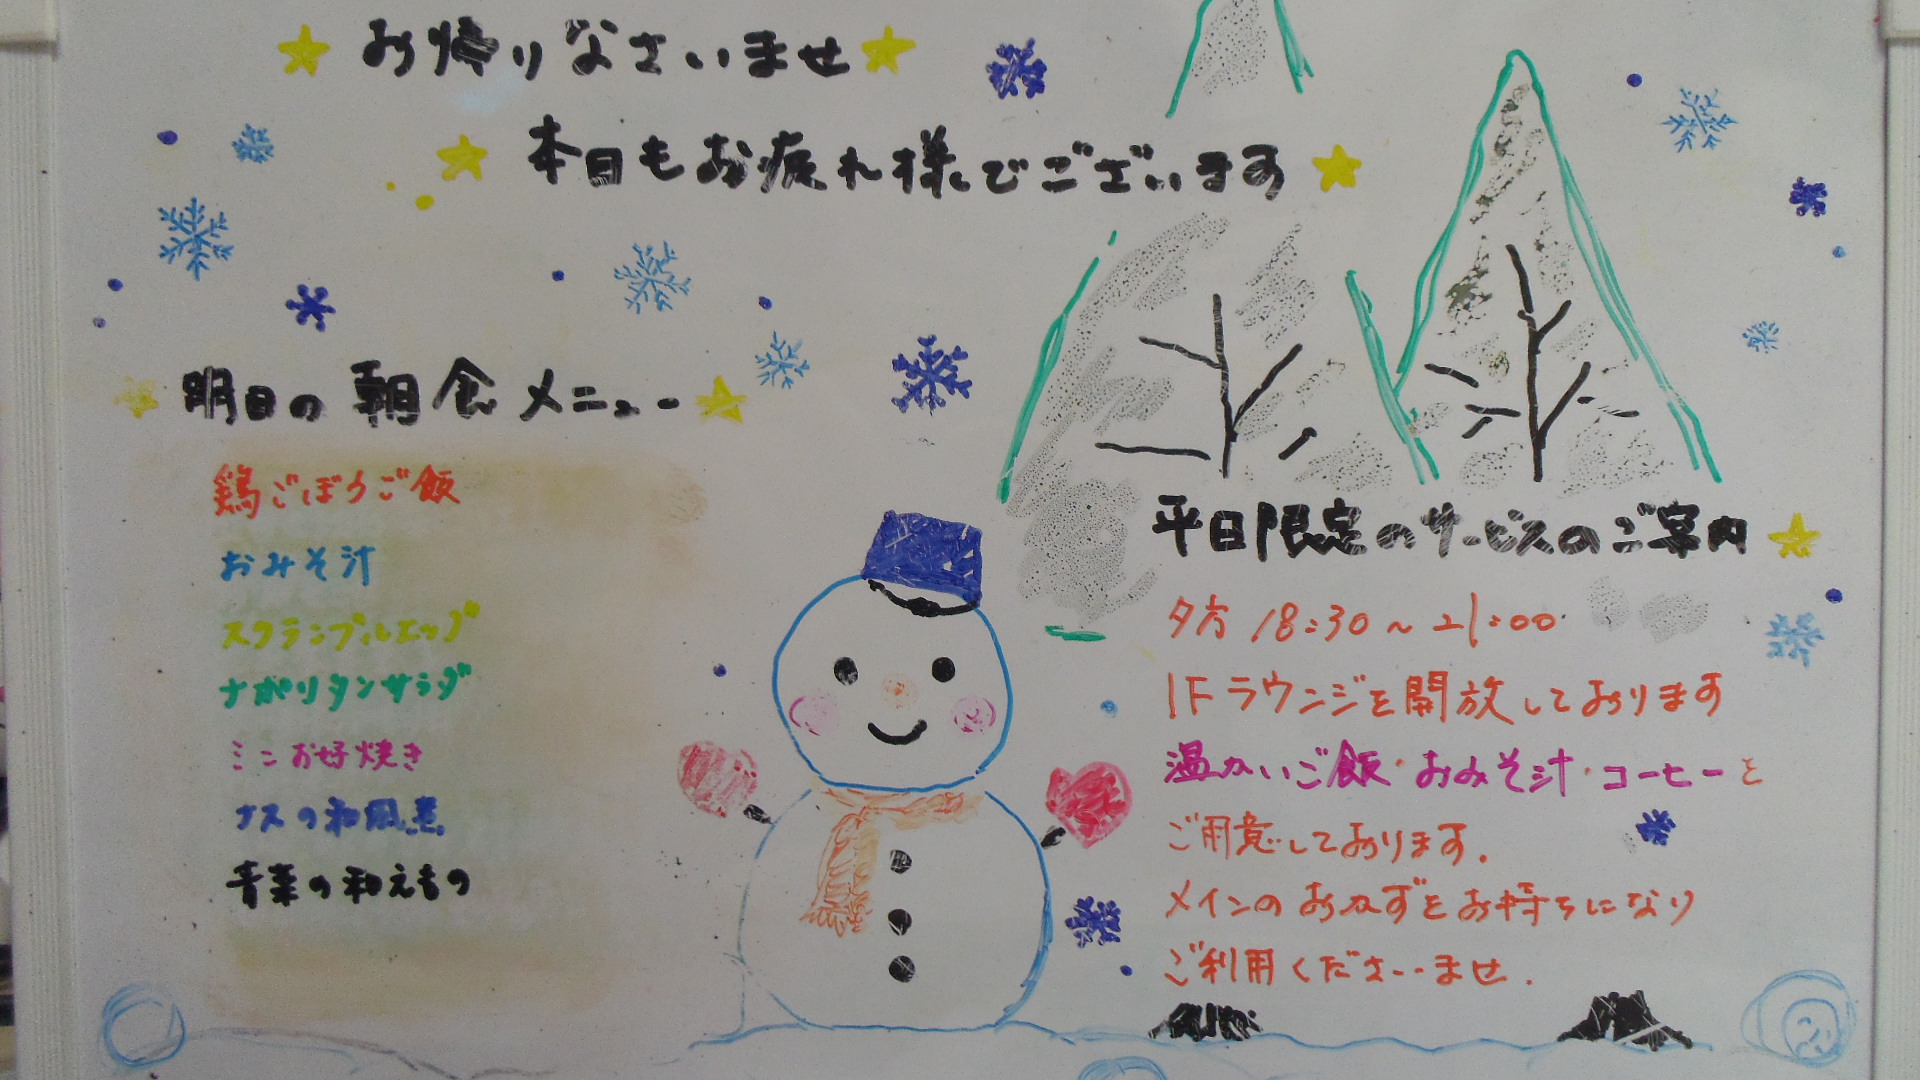 お帰りなさいませ
本日もお疲れ様でございます
明日の朝食メニュー
鶏ごぼうご飯
おみそ汁
スクランブルエッグ
ナポリタンサラダ
ミニお好焼き
ナスの和風煮
青菜の和えもの
平日限定のサービスのご案内
夕方 18:30～21:00
1Fラウンジを開放しております
温かいご飯・おみそ汁・コーヒーを
ご用意しております.
メインのおかずをお持ちになり
ご利用くださいませ.